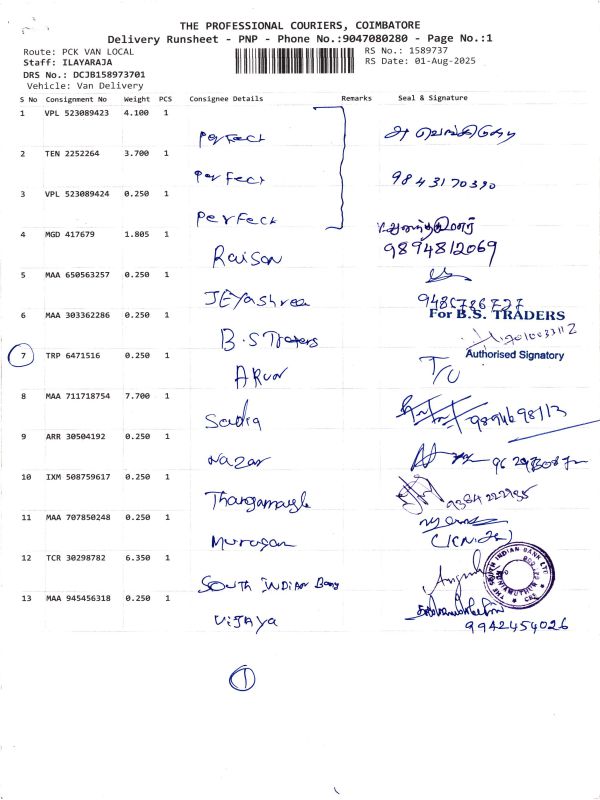 THE PROFESSIONAL COURIERS, COIMBATORE
Delivery Runsheet - PNP - Phone No.:9047080280 - Page No.:1
Route: PCK VAN LOCAL
RS No.: 1589737
Staff: ILAYARAJA
RS Date: 01-Aug-2025
DRS No.: DCJB158973701
Vehicle: Van Delivery
S No Consignment No Weight PCS Consignee Details Remarks Seal & Signature
1 VPL 523089423 4.100 1
Perfect
2 TEN 2252264 3.700 1
Perfect 9843170390
3 VPL 523089424 0.250 1
Perfect
4 MGD 417679 1.805 1
Raison 9894812069
5 MAA 650563257 0.250 1
JEYashree 9485786727
6 MAA 303362286 0.250 1
For B.S. TRADERS
B.S Traders
7 TRP 6471516 0.250 1
Authorised Signatory
ARUN T/U
8 MAA 711718754 7.700 1
Sadia
9 ARR 30504192 0.250 1
Nazar
10 IXM 508759617 0.250 1
Thangamayil 9384222935
11 MAA 707850248 0.250 1
Murugan
12 TCR 30298782 6.350 1
SOUTH INDIAN Bank
THE SOUTH INDIAN BANK LTD
13 MAA 945456318 0.250 1
Vijaya
9942454026
1